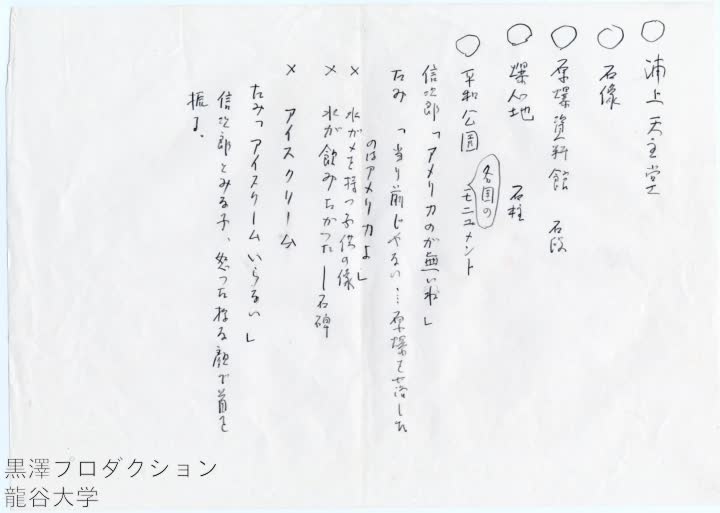 ○ 浦上天主堂
○ 石像
○ 原爆資料館 石段
○ 爆心地 石柱
○ 平和公園 各国のモニュメント
信次郎「アメリカのが無いね」
たみ「当り前じゃない…原爆を落した
のはアメリカよ」
× 水ガメを持つ子供の像
× 水が飲みたかった―石碑
× アイスクリーム
たみ「アイスクリームいらない」
信次郎とみな子、怒った様な顔で首を
振る。
黒澤プロダクション
龍谷大学